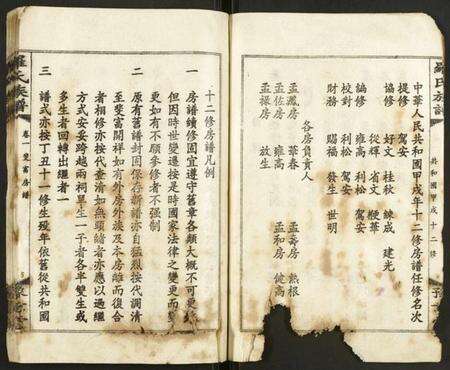 羅氏族譜
共和國甲戌十二修
中華人民共和國甲戌年十二修房譜任修名次
提修 駕安
協修 好文 桂秋 練成 建光
從輝 省文 鞭華
編修 雍高 利松 駕安
校對 利松 駕安
財務 賜福 發生 世明
各房負責人
孟瀛房 華春 孟壽房 熱根
孟佐房 雍高 孟和房 健高
孟操房 放生
十二修房譜凡例
一 房譜續修固宜遵守舊章各類大概不可更
但因時世變遷按是時國家法律之變更而變
更如有不願參修者不强制
二 原有舊譜封固保存新譜亦自猛烈按代調清
至斐富開祥如有外房外族及本房離而復合
者相修亦按代查清如無頭緒者亦應以過繼
方式安妥跨越兩祠單生一子者各半雙生或
多生者回轉出繼者一
三 譜式亦按丁丑十一修生歿年依舊從共和國
羅氏族譜
卷一 斐富房譜
豫章堂